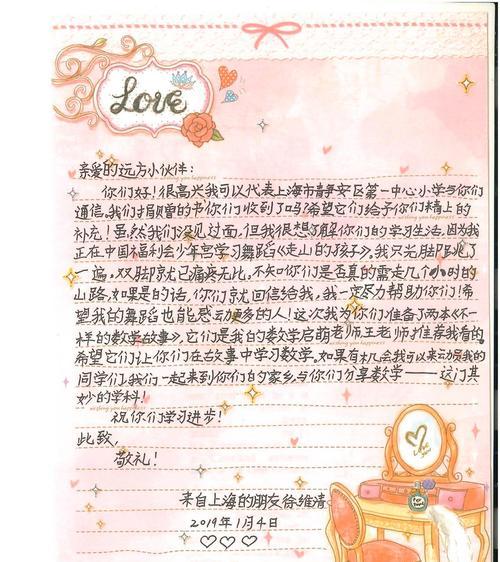 Love
亲爱的远方小伙伴:
你们好!很高兴我可以代表上海市静安区第一中心小学与你们
通信,我们捐赠的书你们收到了吗?希望它们给予你们精上的
补充!虽然我们没见过面,但我很想了解你们的学习生活,因为我
正在中国福利会少年宫学习舞蹈《走山的孩子》,我只光脚跳了
一遍,双脚就已痛疼无比,不知你们是否真的需走几个小时的
山路,如果是的话,你们就回信给我,我一定尽力帮助你们!希
望我的舞蹈也能感动更多的人!这次我为你们准备了两本《不一
样的数学故事》,它们是我的数学启萌老师王老师推荐我看的,
希望它们让你们在故事中学习数学,如果有机会我可以来动员我的
同学们,我们一起来到你们的家乡与你们分享数学——这门其
妙的学科!
祝你们学习进步!
此致,
敬礼!
来自上海的朋友徐维清
2019年1月4日